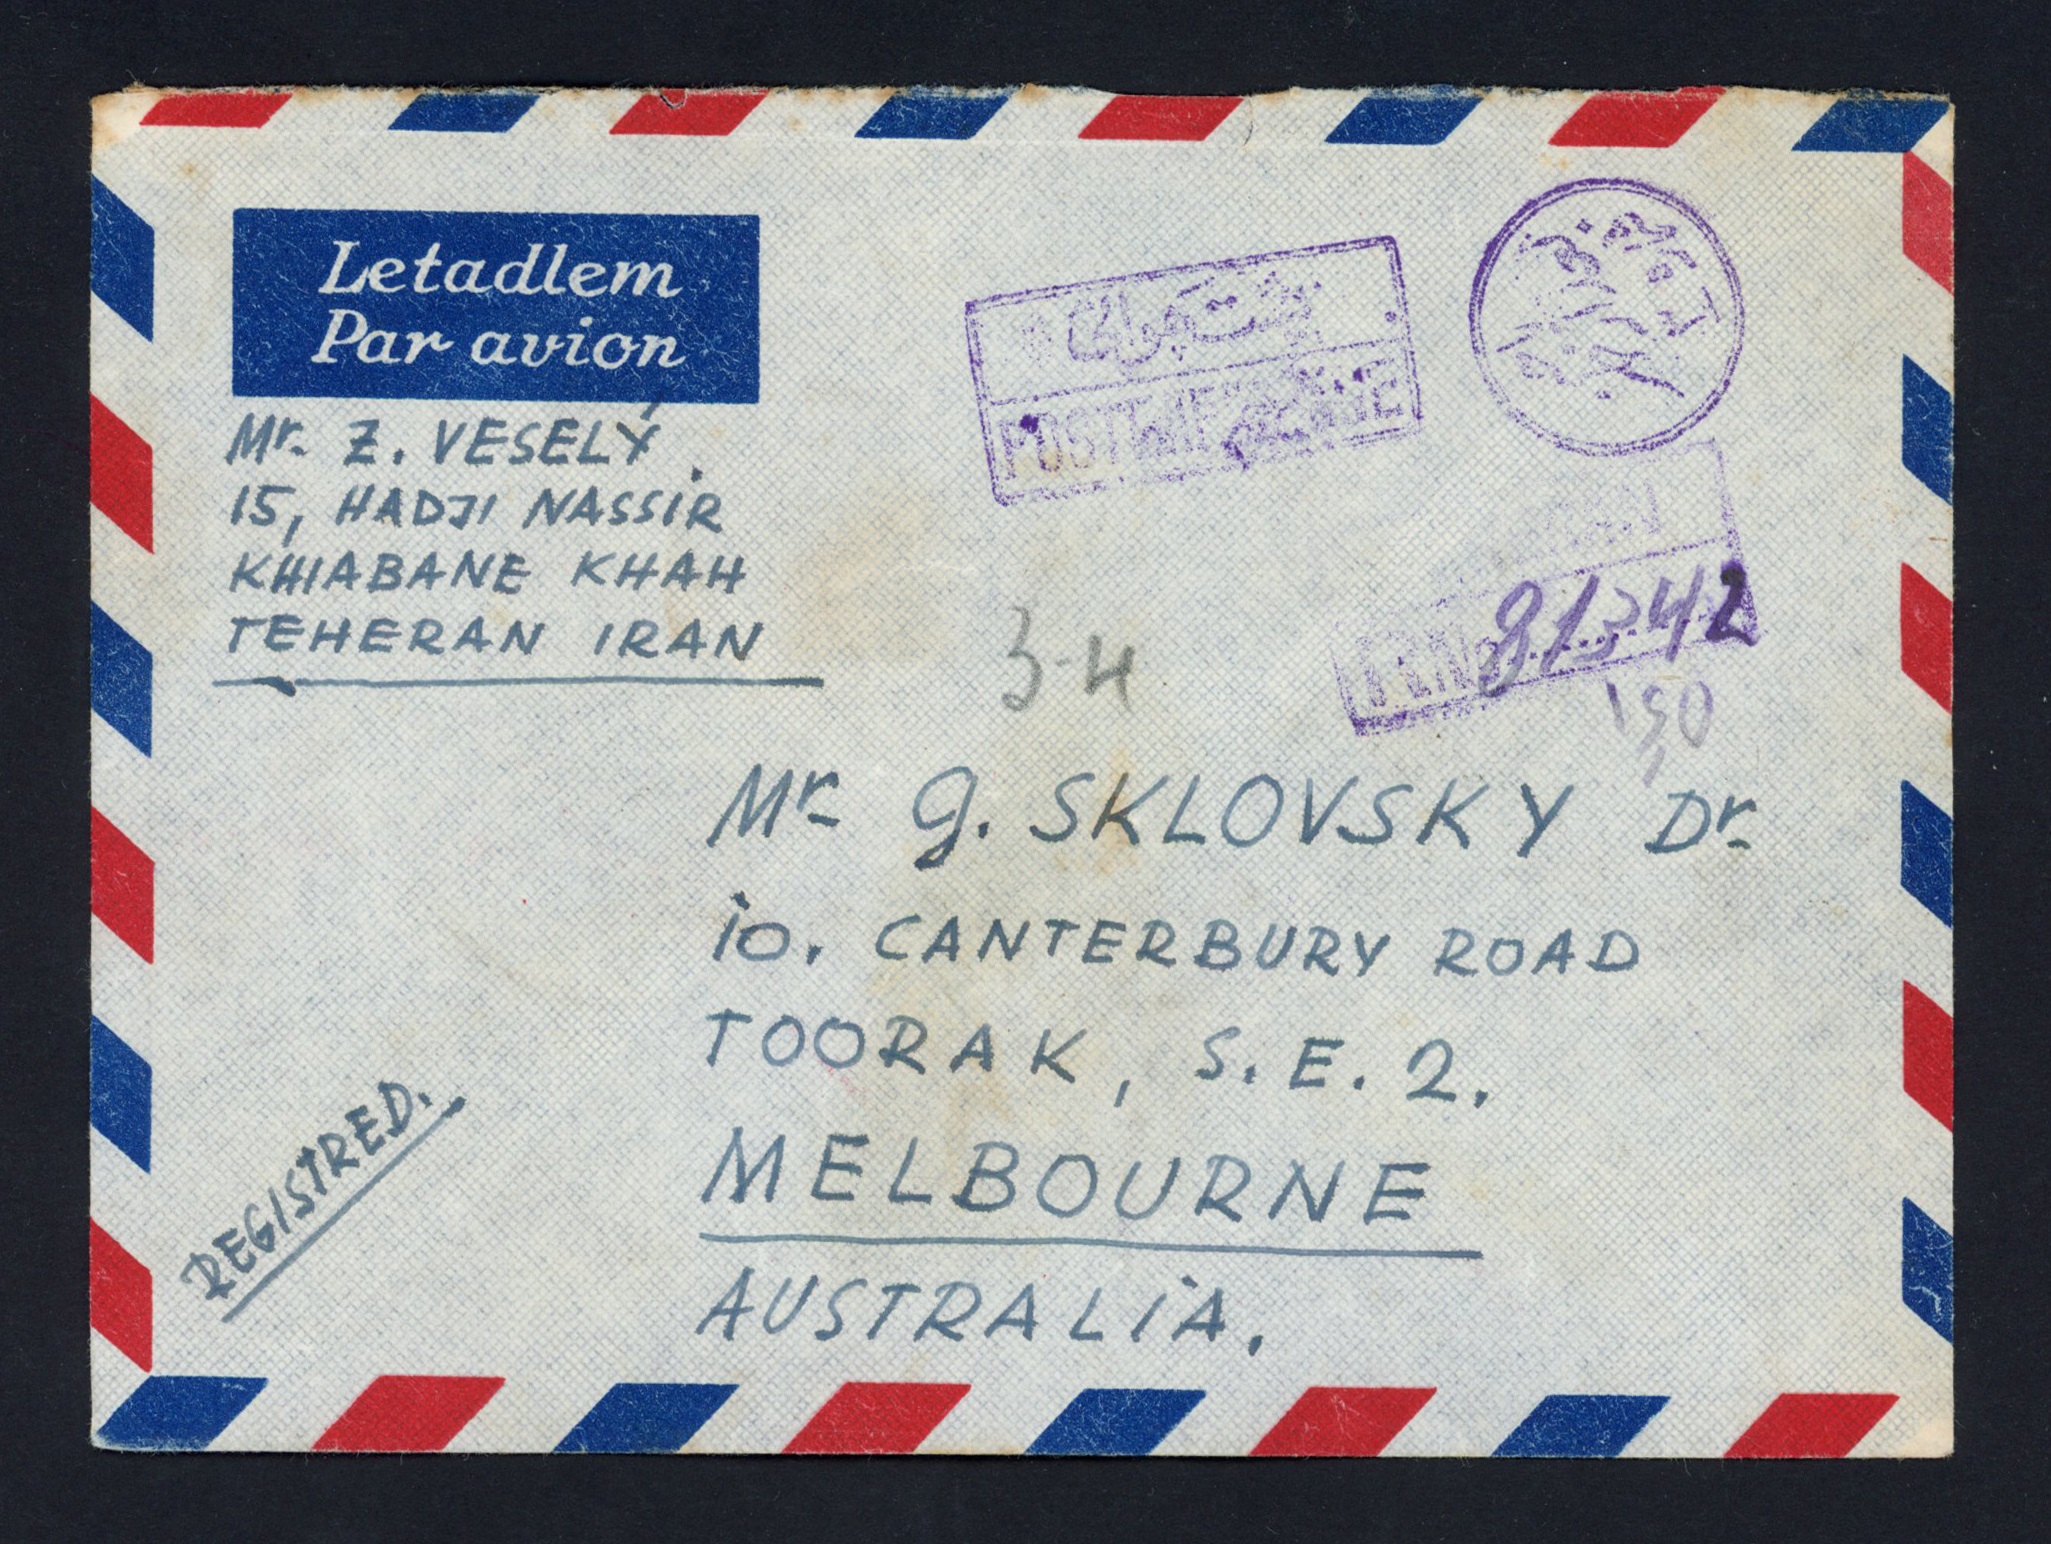 Letadlem
Par avion
Mr. Z. VESELÝ.
15, HADJI NASSIR
KHIABANE KHAH
TEHERAN IRAN
81342
3-4
Mr. G. SKLOVSKY Dr.
10. CANTERBURY ROAD
TOORAK, S.E.2.
MELBOURNE
AUSTRALIA.
REGISTRED.